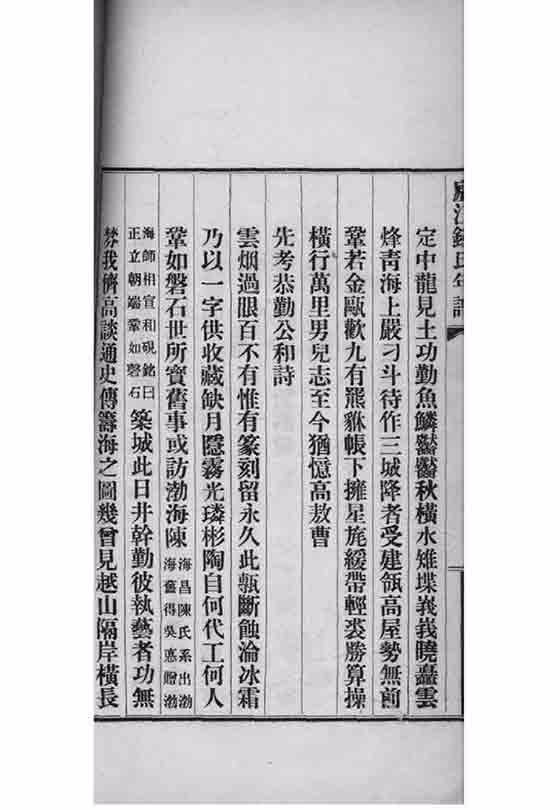 廬江錢氏年譜
定中龍見土功勤魚鱗齾齾秋橫水雉堞峩峩曉矗雲
烽靑海上嚴刁斗待作三城降者受建瓴高屋勢無前
鞏若金甌歡九有羆貅帳下擁星旄緩帶輕裘勝算操
橫行萬里男兒志至今猶憶高敖曹
先考恭勤公和詩
雲烟過眼百不有惟有篆刻留永久此甎斷蝕淪冰霜
乃以一字供收藏缺月隱霧光璘彬陶自何代工何人
鞏如磐石世所寳舊事或訪渤海陳海昌陳氏系出渤海舊得吳憙贈渤
海師相宣和硯銘曰正立朝端鞏如磐石築城此日井幹勤彼執藝者功無
棼我儕高談通史傳籌海之圖幾曾見越山隔岸橫長